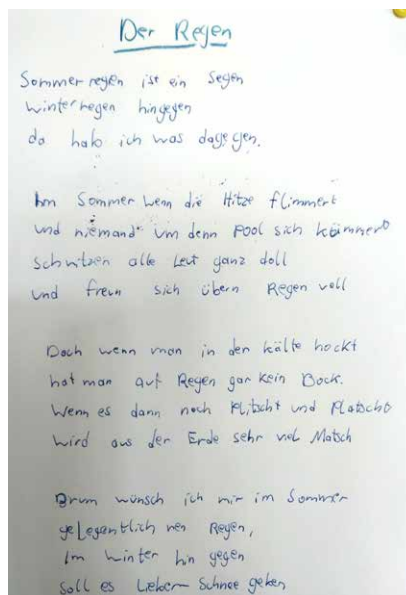 Der Regen
Sommerregen ist ein Segen
Winterregen hingegen
da hab ich was dagegen.
Im Sommer wenn die Hitze flimmert
und niemand um denn Pool sich kümmert
schwitzen alle Leut ganz doll
und freun sich übern Regen voll
Doch wenn man in der kälte hockt
hat man auf Regen gar kein Bock.
Wenn es dann noch Plitscht und Platscht
wird aus der Erde sehr viel Matsch
Drum wünsch ich mir im Sommer
gelegentlich nen Regen,
Im Winter hin gegen
soll es Lieber Schnee geben